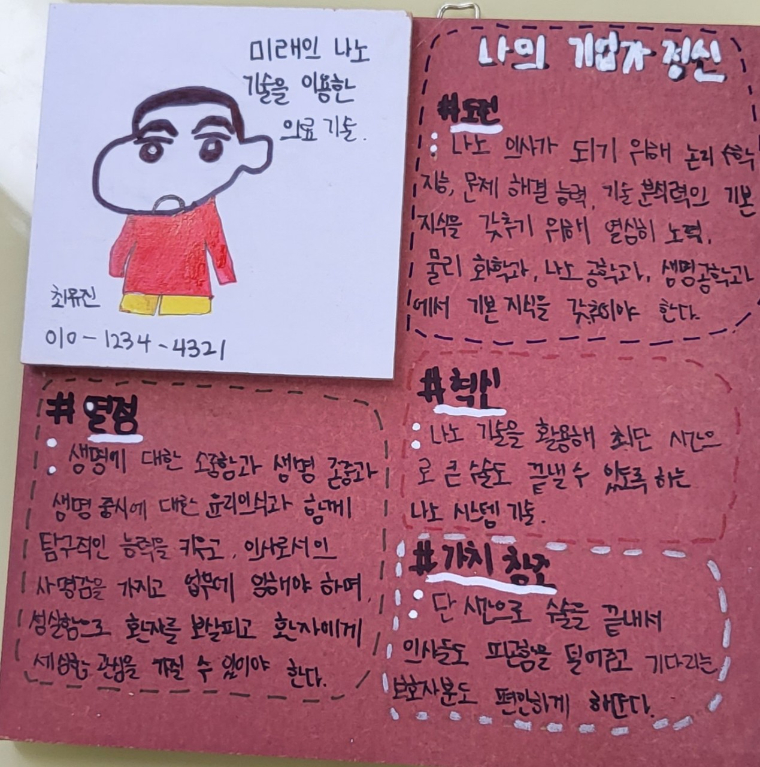 미래인 나노
기술을 이용한
의료 기술.
최유진
010-1234-4321
나의 기업가 정신
#도전
: 나노 의사가 되기 위해 논리 수학
지능, 문제 해결 능력, 기술 분석력의 기본
지식을 갖추기 위해 열심히 노력.
물리 화학과, 나노 공학과, 생명공학과
에서 기본 지식을 갖추어야 한다.
#열정
: 생명에 대한 소중함과 생명 존중과
생명 중시에 대한 윤리의식과 함께
탐구적인 능력을 키우고, 의사로서의
사명감을 가지고 업무에 임해야 하며,
성실함으로 환자를 보살피고 환자에게
세심한 관심을 가질 수 있어야 한다.
#혁신
: 나노 기술을 활용해 최단 시간으
로 큰 수술도 끝낼 수 있도록 하는
나노 시스템 기술.
#가치 창조
: 단 시간으로 수술을 끝내서
의사들도 피곤함을 덜어주고 기다리는
보호자분도 편안하게 해준다.